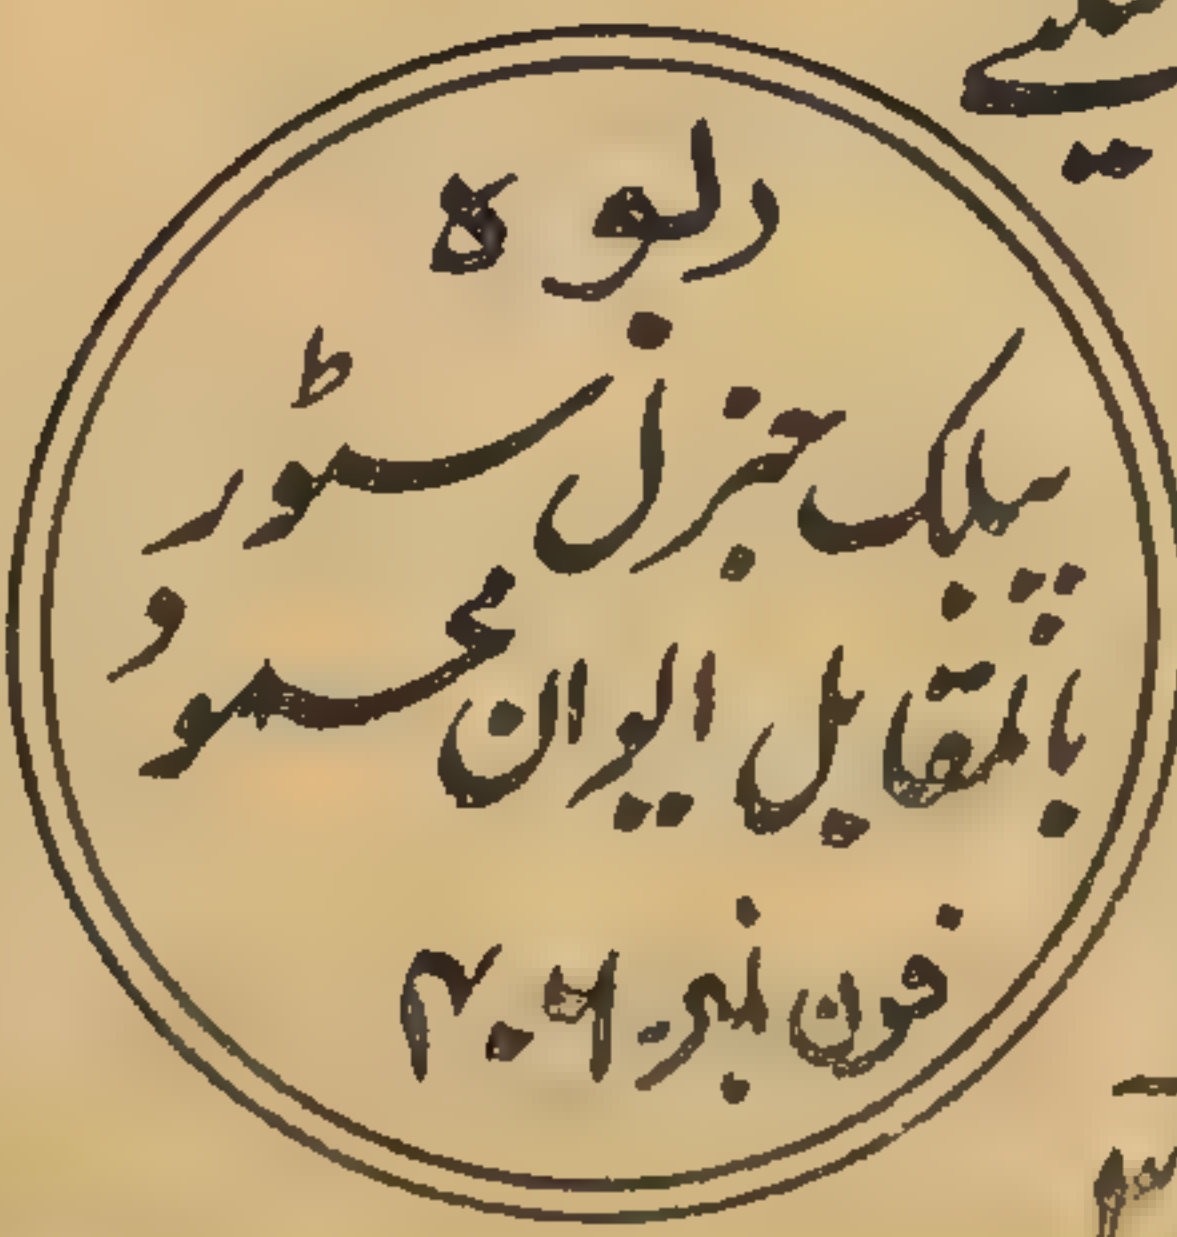 ربوہ
پبلک جنرل سٹور
بالمقابل ایوان محمود
فون نمبر ۴۰۶